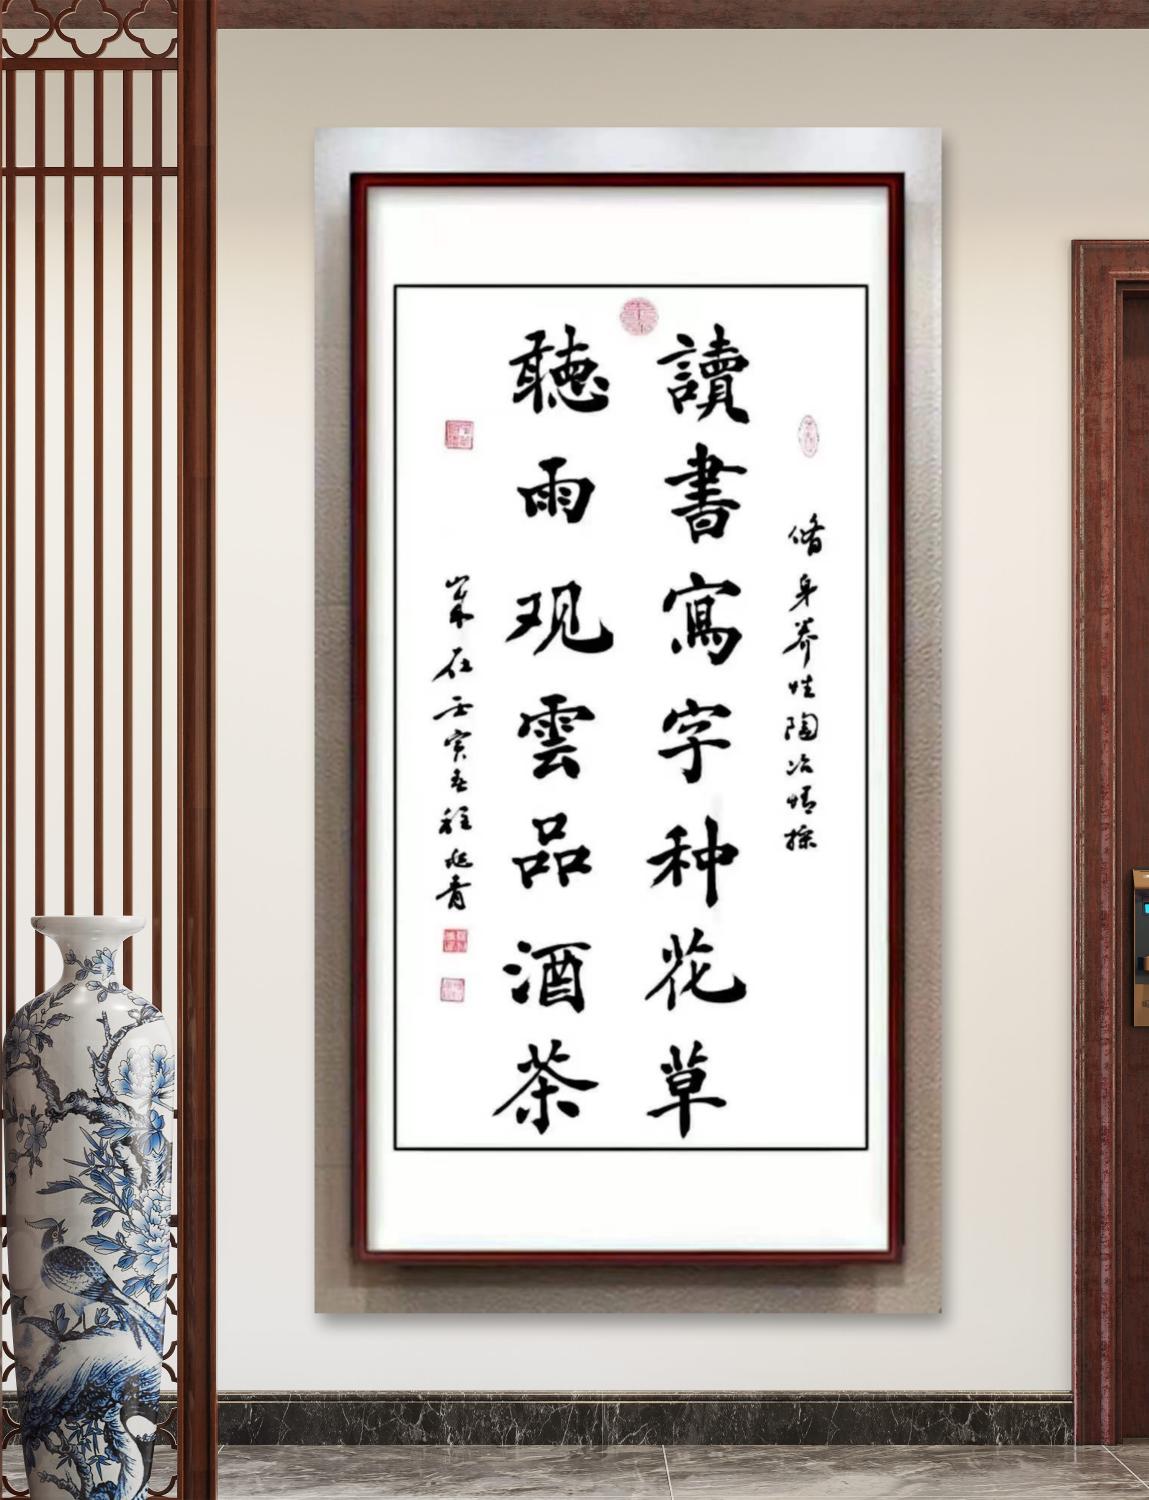 脩身养性陶冶情操
讀書寫字种花草
聽雨观雲品酒茶
岁在壬寅春程旭青